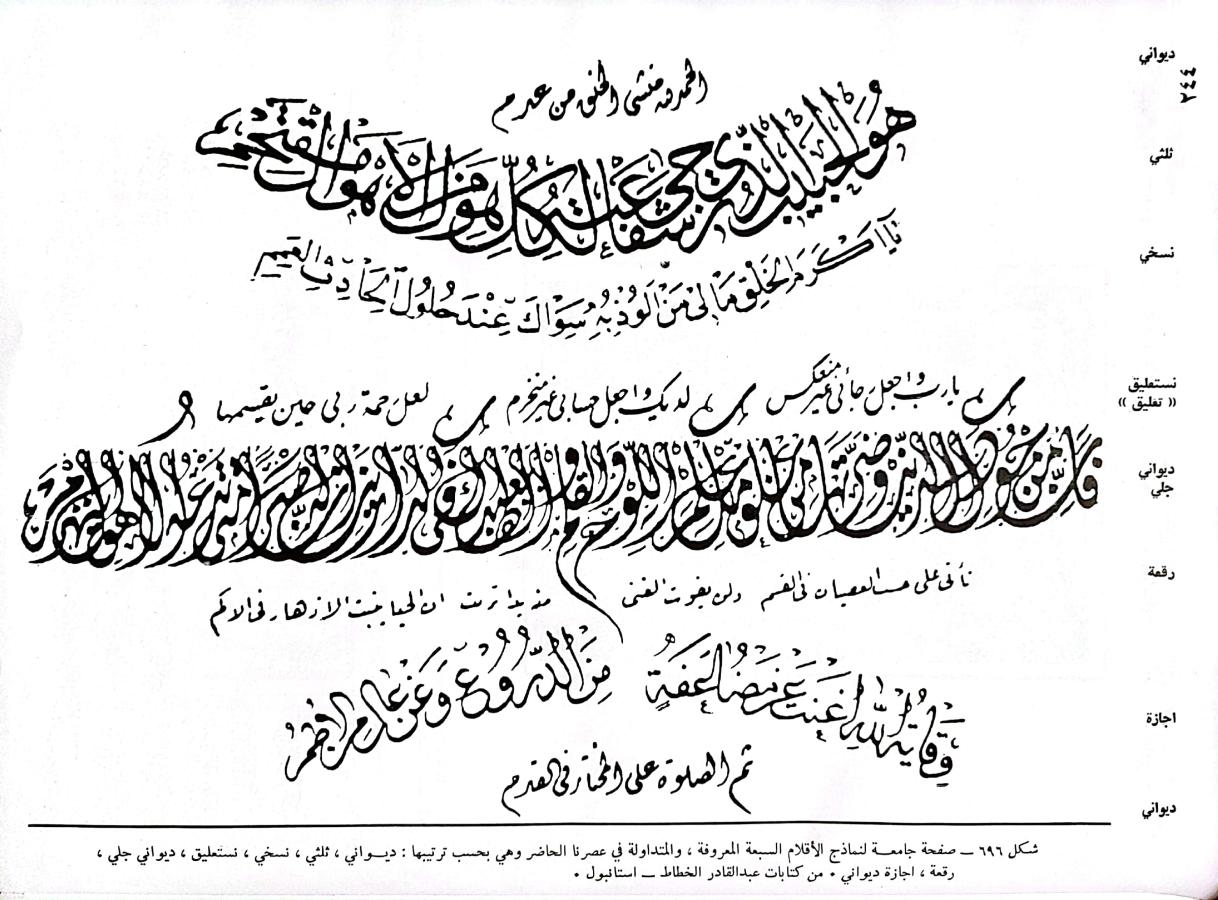 ٢٤٤
ديواني
الحمد لله منشئ الخلق من عدم
ثلثي
هُوَ الحبيب الذي ترجى شفاعته لكل هول من الأهوال مقتحم
نسخي
يَا أكرم الخلق مَا لِي مَنْ الُوذُ بِهِ سِوَاكَ عِنْدَ حُلُولِ الْحَادِثِ العَمِمِ
نستعليق
(( تعليق ))
يارب واجعل رجائى غير منعكس لديك واجعل حسابى غير منخرم
لعل رحمة ربى حين يقسمها
ديواني
جلي
فان من جودك الدنيا وضرتها ومن علومك علم اللوح والقلم
رقعة
تأتى على حسب العصيان فى القسم ولن يفوت الغنى منه يدا تربت ان الحيا ينبت الازهار فى الاكم
اجازة
وقاية الله اغنت عن مضاعفة من الدروع وعن عال من الاطم
ديواني
ثم الصلوة على المختار فى القدم
شكل ٦٩٦ ــ صفحة جامعــة لنماذج الأقلام السبعة المعروفة ، والمتداولة في عصرنا الحاضر وهي بحسب ترتيبها : ديــواني ، ثلثي ، نسخي ، نستعليق ، ديواني جلي ،
رقعة ، اجازة ديواني ٠ من كتابات عبدالقادر الخطاط ــ استانبول ٠